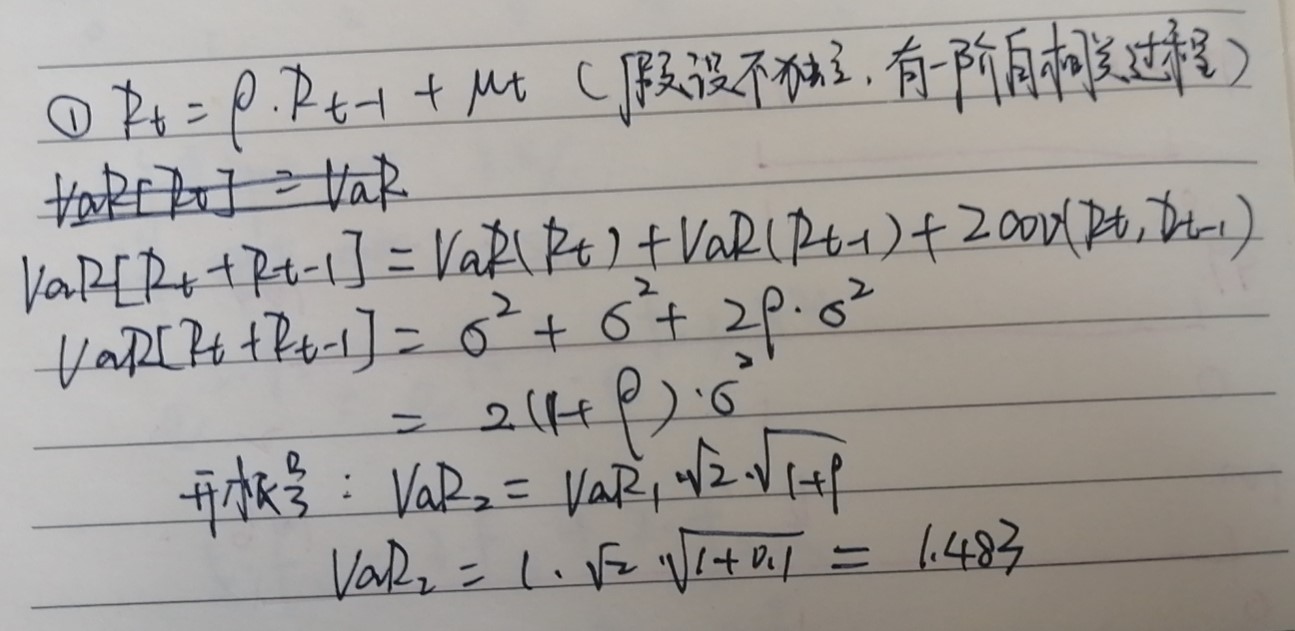 ① Rt = ρ · Rt-1 + μt (假设不独立, 有一阶自相关过程)
VaR[Rt] = VaR
VaR[Rt + Rt-1] = VaR(Rt) + VaR(Rt-1) + 2cov(Rt, Rt-1)
VaR[Rt + Rt-1] = σ² + σ² + 2ρ · σ²
= 2(1+ρ) · σ²
开根号: VaR₂ = VaR₁ · √2 · √1+ρ
VaR₂ = 1 · √2 · √1+0.1 = 1.483